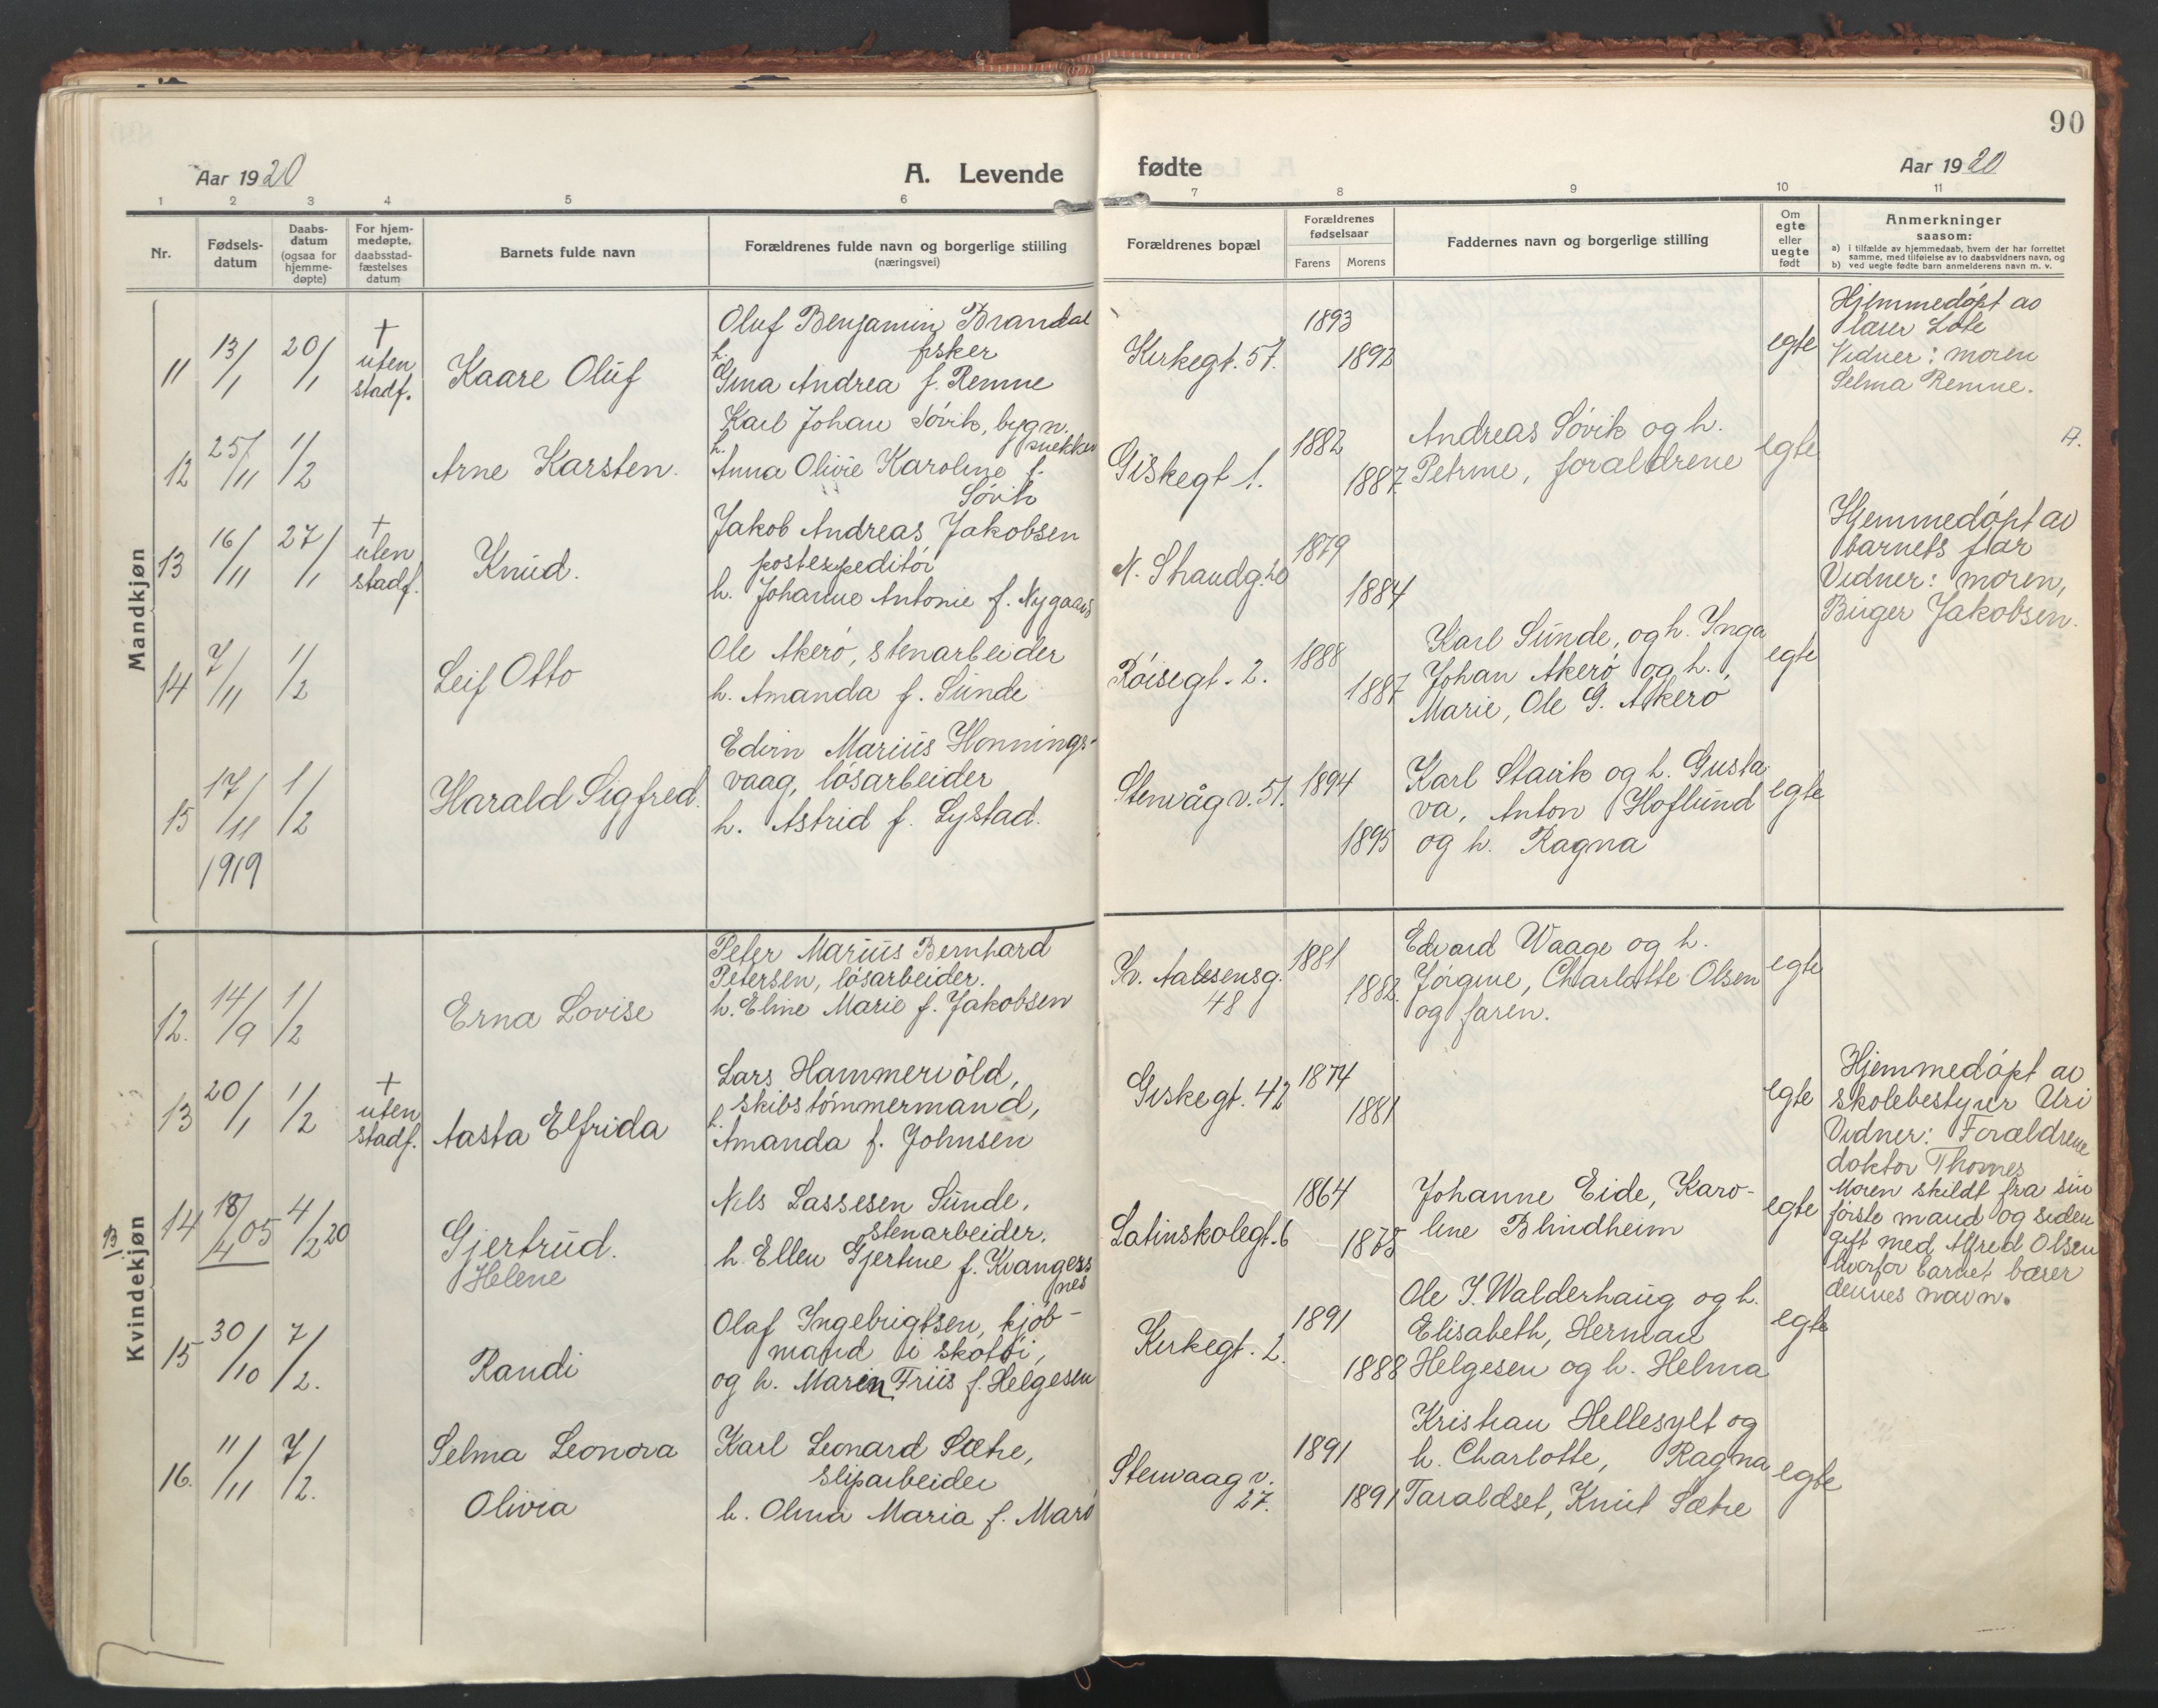 90
Aar 1920
A. Levende fødte
Aar 1920
1 2 3 4 5 6 7 8 9 10 11
Nr.
Fødsels-
datum
Daabs-
datum
(ogsaa for
hjemme-
døpte)
For hjem-
medøpte,
daabsstad-
fæstelses
datum
Barnets fulde navn
Forældrenes fulde navn og borgerlige stilling
(næringsvei)
Forældrenes bopæl
Forældrenes
fødselsaar
Farens Morens
Faddernes navn og borgerlige stilling
Om
egte
eller
uegte
født
Anmerkninger
saasom:
a) i tilfælde av hjemmedaab, hvem der har forrettet
samme, med tilføielse av to daabsvidners navn, og
b) ved uegte fødte barn anmelderens navn m. v.
Mandkjøn
11
13/1
20/1
+
uten
stadf.
Kaare Oluf
Oluf Benjamin Brandal
fisker
h.
Gina Andrea f. Remne
Kirkegt. 57.
1893
1892
egte
Hjemmedøpt av
lærer Lote
Vidner: moren
Selma Remne.
12
25/11
1/2
Arne Karsten.
Karl Johan Søvik, bygn.
snekker
h.
Anna Olivie Karoline f.
Søvik
Giskegt 1.
1882
1887
Andreas Søvik og h.
Petrine, forældrene
egte
A.
13
16/11
27/1
+
uten
stadf.
Knud.
Jakob Andreas Jakobsen
postexpeditør
h. Johanne Antonie f. Nygaard
N. Strandg. 20
1879
1884
Hjemmedøpt av
barnets far
Vidner: moren,
Birger Jakobsen.
14
7/11
1/2
Leif Otto
Ole Akerø, stenarbeider
h. Amanda f. Sunde
Røisegt. 2.
1888
1887
Karl Sunde, og h. Inga
Johan Akerø og h.,
Marie, Ole G. Akerø
egte
15
17/11
1919
1/2
Harald Sigfred.
Edvin Marius Honnings-
vaag, løsarbeider
h. Astrid f. Lystad.
Stenvåg v. 51.
1894
1895
Karl Stavik og h. Gusta
va, Anton Hoflund
og h. Ragna
egte
Kvindekjøn
12.
14/9
1/2
Erna Lovise
Peter Marius Bernhard
Petersen, løsarbeider.
h. Eline Marie f. Jakobsen
Iv. Aalesensg.
48
1881
1882.
Edvard Waage og h.
Jørgine, Charlotte Olsen
og faren.
egte
13
20/1
1/2
+
uten
stadf.
Aasta Elfrida
Lars Hammervold,
skibstømmermand,
h.
Amanda f. Johnsen
Giskegt. 42
1874
1881
egte
Hjemmedøpt av
skolebestyrer Uri
Vidner: Forældrene
doktor Thomes
B.
14
18/4 05
4/2 20
Gjertrud.
Helene
Nils Lassesen Sunde,
stenarbeider.
h. Ellen Gjertine f. Kvangers
nes
Latinskolegt. 6
1864
1875
Johanne Eide, Karo-
line Blindheim
egte
Moren skildt fra sin
første mand og siden
gift med Alfred Olsen
hvorfor barnet bærer
dennes navn.
15
30/10
7/2.
Randi
Olaf Ingebrigtsen, kjøb-
mand i skotøi,
og h. Maren Friis f. Helgesen
Kirkegt. 2.
1891
1888
Ole J. Walderhaug og h.
Elisabeth, Herman
Helgesen og h. Helma
egte
16.
11/11
7/2.
Selma Leonora
Olivia
Karl Leonard Sætre,
sliparbeider
h. Olma Maria f. Marø
Stenvaag v.
27.
1891
1891
Kristian Hellesylt og
h. Charlotte, Ragna
Taraldset, Knut Sætre
egte